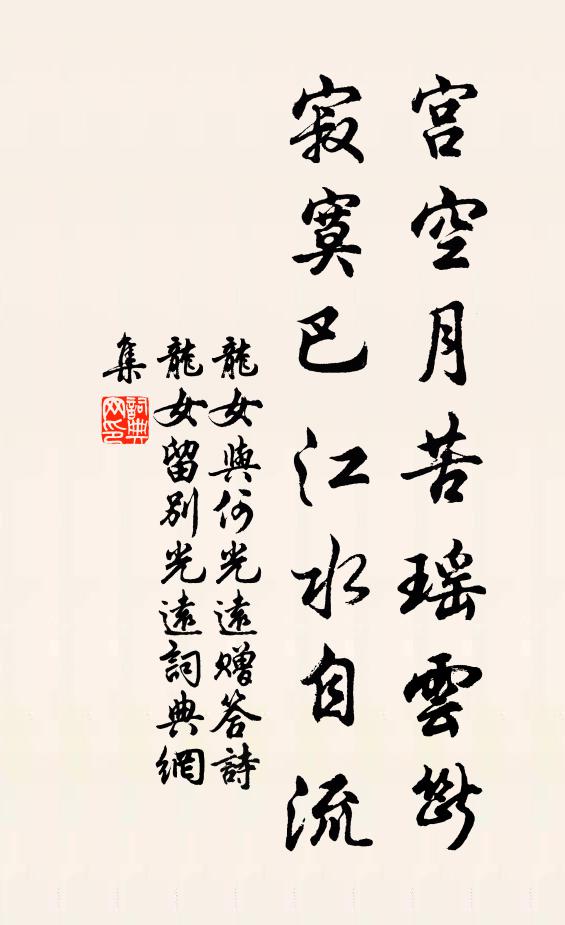 宮空月苦瑶雲斷
寂寞巴江水自流
龍女與何光遠贈答詩
龍女留别光遠詞典網
集
詞典網印